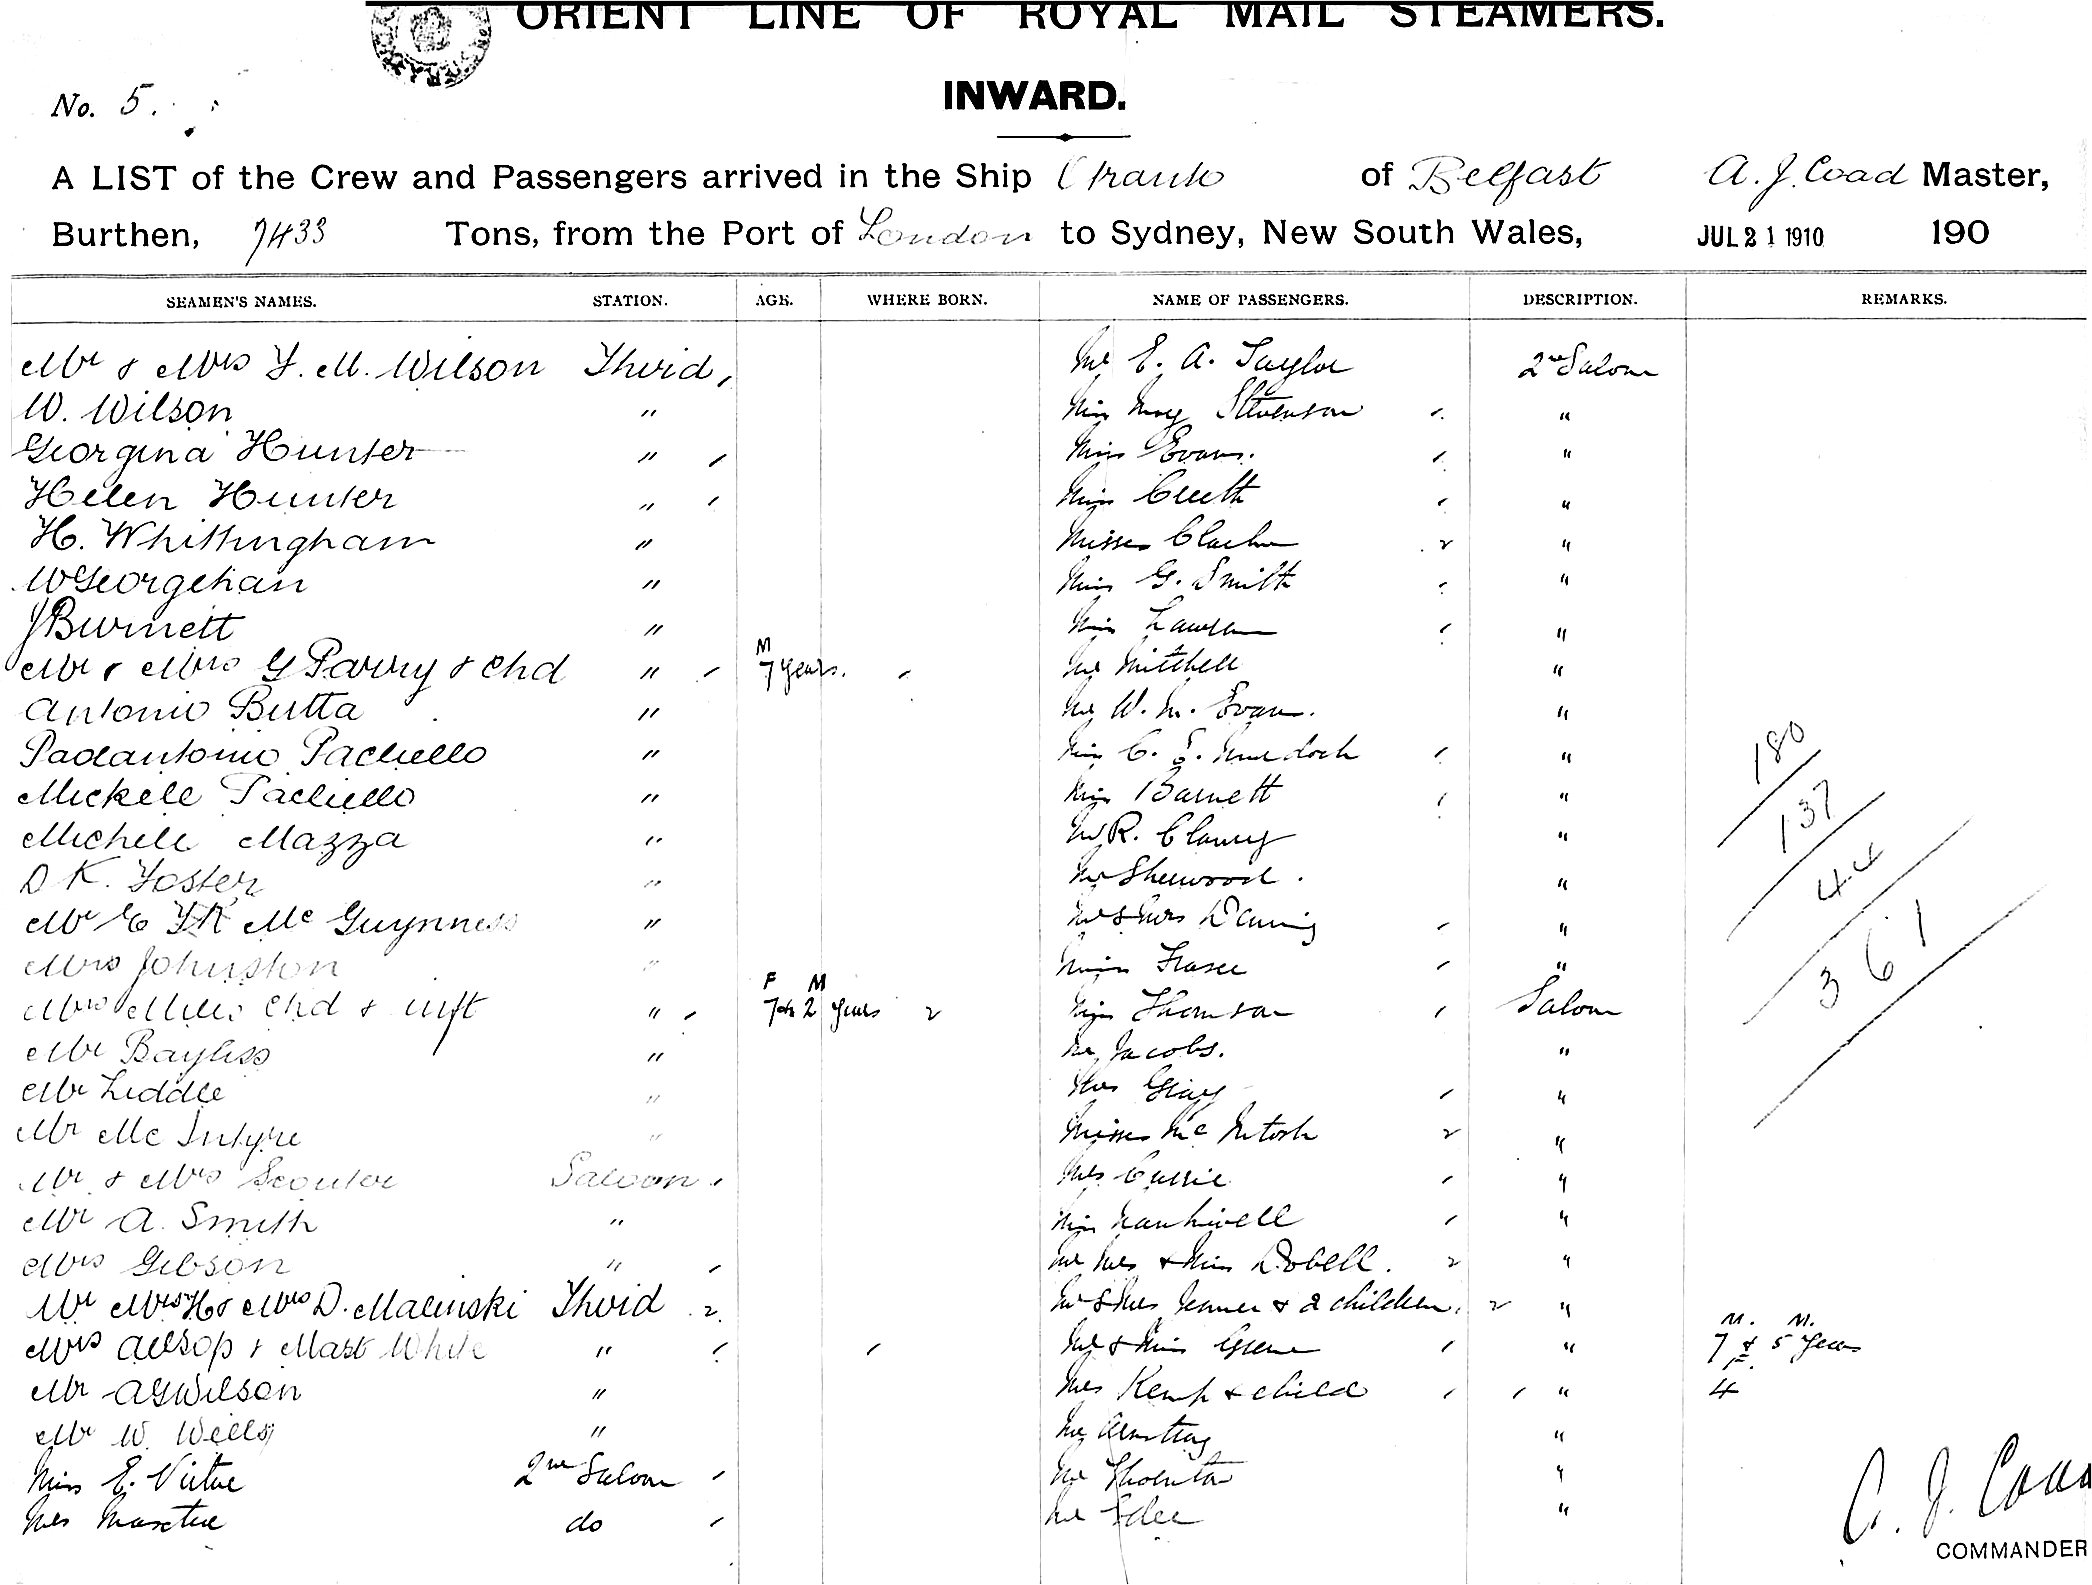 ORIENT LINE OF ROYAL MAIL STEAMERS.
No. 5.
INWARD.
A LIST of the Crew and Passengers arrived in the Ship of Belfast A. J. Coad Master,
Burthen, 7433 Tons, from the Port of London to Sydney, New South Wales, JUL 21 1910 190
SEAMEN'S NAMES. STATION. AGE. WHERE BORN. NAME OF PASSENGERS. DESCRIPTION. REMARKS.
Mr & Mrs F. M. Wilson Third Mr E. A. Taylor 2nd Saloon
W. Wilson " Miss May Stevenson "
Georgina Hunter " Miss Evans. "
Helen Hunter " Miss "
H. Whittingham " Misses "
W " Miss G. Smith "
J Burnett " Miss "
M
Mr & Mrs G Parry & Chd " 7 years. Mr Mitchell "
Antonio Butta " Mr W. M. Evans. "
" Miss C. E. Murdoch "
" Miss Barnett "
Michele Mazza " Mr R. Clancy "
D K. Foster " Mr Sherwood. "
Mr McGuynness " Mr & Mrs "
Mrs Johnston " Miss Fraser "
F M
Mrs Chd & inft " 7 & 2 years Miss Thomson Saloon
Mr Bayliss " Mr Jacobs. "
Mr Liddle " Mrs Gray "
Mr McIntyre " Misses McIntosh "
Mr & Mrs Saloon Mrs Currie "
Mr A. Smith " Miss "
Mrs Gibson " Mr Mrs & Miss Dobell. "
Mr Mrs H & Mrs D. Malinski Third Mr & Mrs & 2 children. "
M. M.
Mrs Allsop & Mast White " Mr & Miss Greene " 7 & 5 years
F.
Mr AGWilson " Mrs Kemp & child " 4
Mr W. Wells " Mr "
Miss E. Virtue 2nd Saloon Mr Thornton "
Mrs do Mr "
180
137
44
361
A. J. Coad
COMMANDER